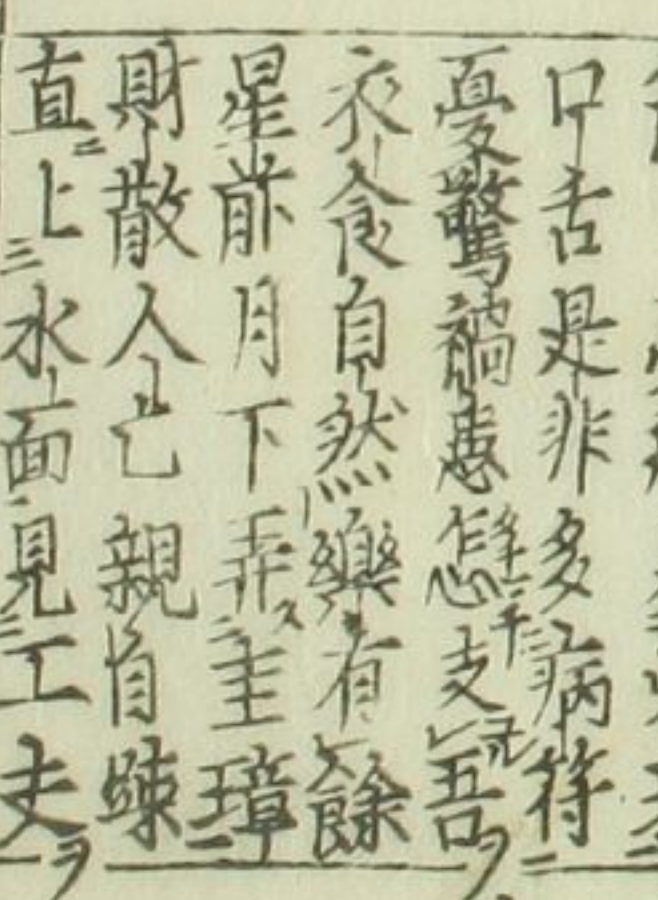 口舌是非多病符
憂驚禍患怎支吾
衣食自然樂有餘
星前月下弄圭璋
財散人亡親自踈
直上水面見工夫